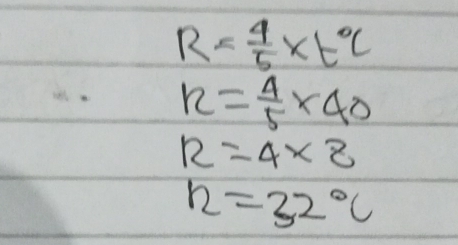 R = 4/5 × t°C
R = 4/5 × 40
R = 4 × 8
R = 32°C